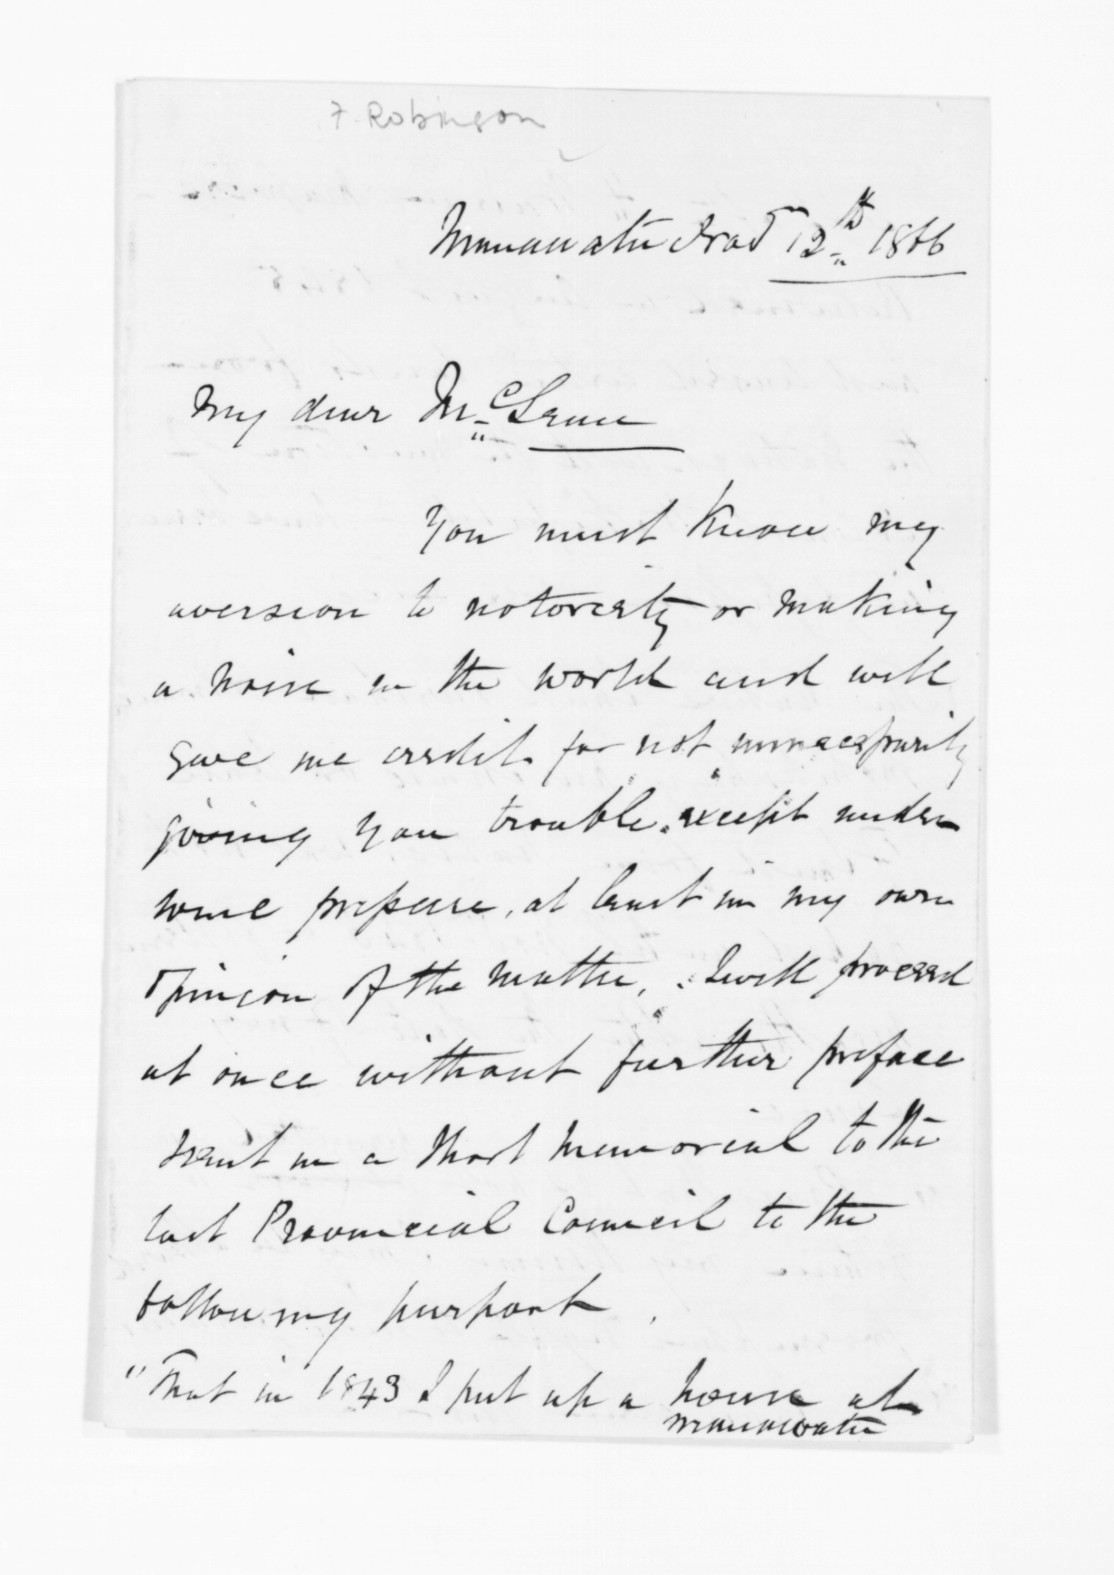 F Robinson
Manawatu 12th 1866
My dear McLean
You must know my
aversion to notoriety or making
a noise in the world and will
give me credit for not unnecessarily
giving you trouble. except under
some pressure, at least in my own
opinion of the matter, I will proceed
at once without further preface
I sent in a short memorial to the
last Provincial Council to the
following purport.
"That in 1843 I put up a house at
Manawatu